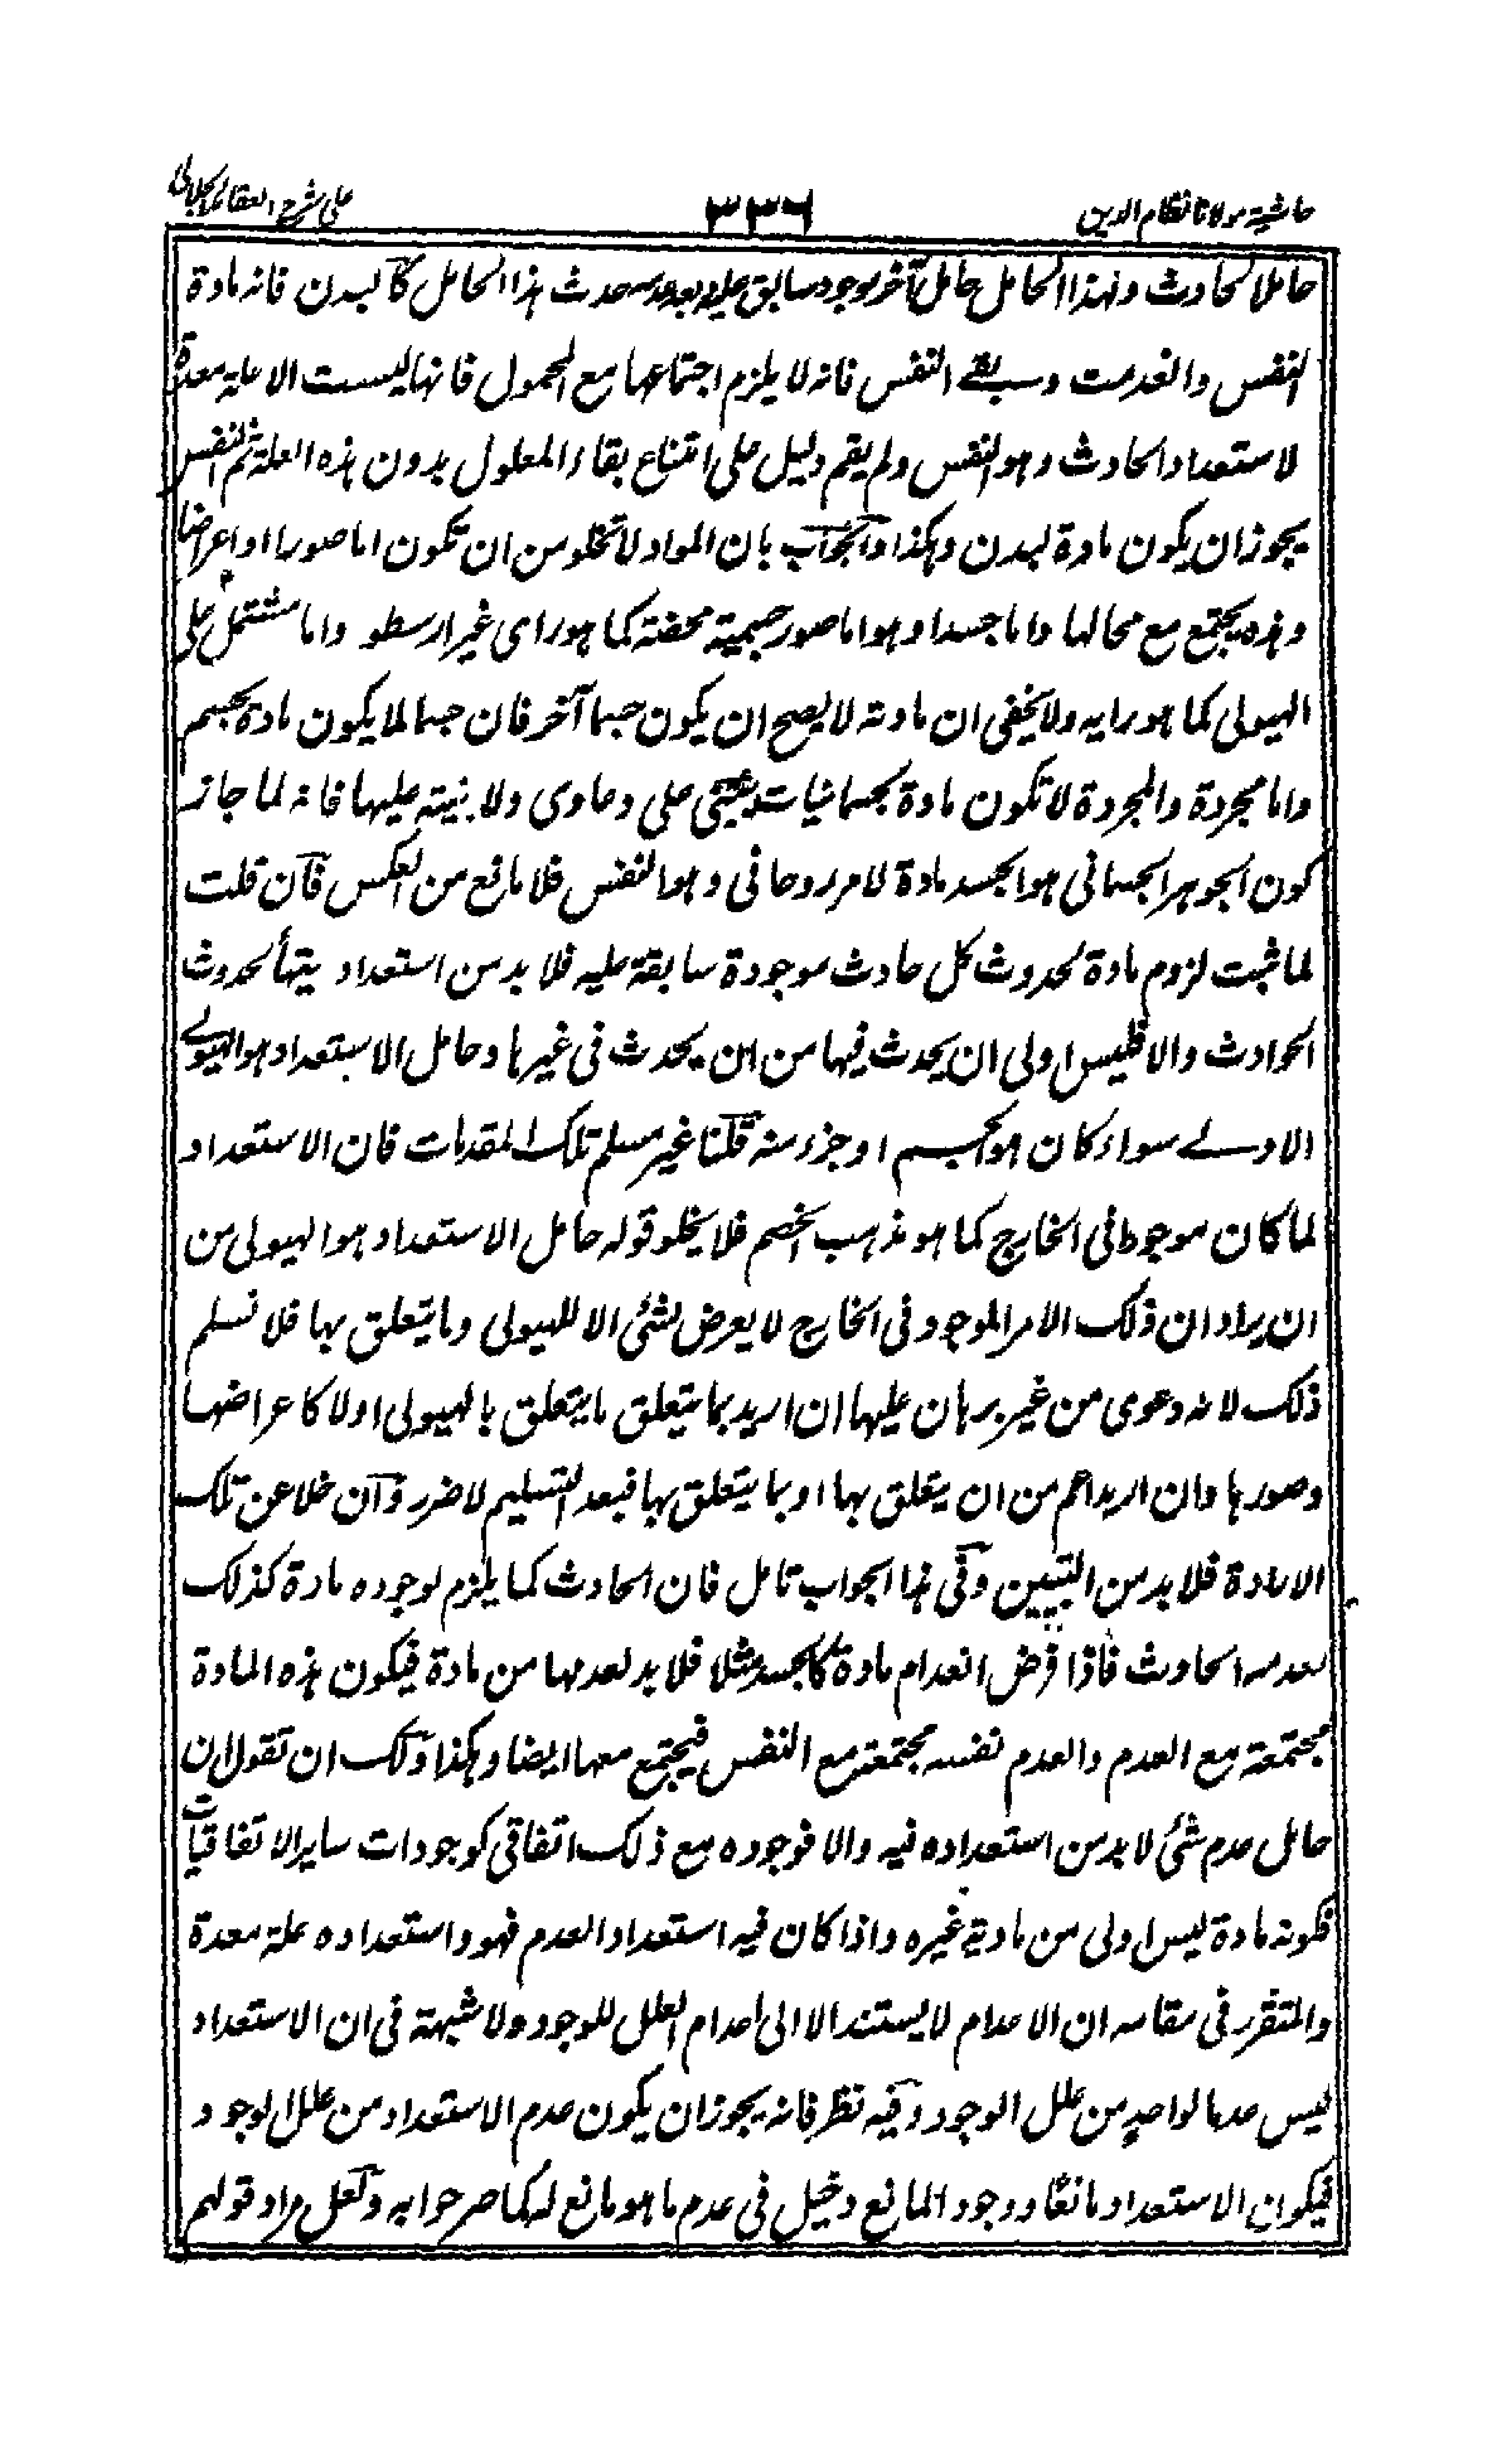 حاشية مولانا نظام الدين
٣٣٦
على شرح العقائد الجلالى
حاملا لحادث ولهذا الحامل حامل آخر موجود سابق عليه وبعد حدث هذا الحامل كالبدن فانه مادة
النفس وانعدمت وبقى النفس فانه لا يلزم اجتماعها مع المحمول فانها ليست الا علة معدة
لاستعداد الحادث وهو النفس ولم يقم دليل على امتناع بقاء المعلول بدون هذه العلة ثم النفس
يجوز ان يكون مادة لبدن وهكذا والجواب بان المواد لا تخلو من ان تكون اما صورا او اعراضا
وهذه يجتمع مع محالها واما جسدا وهو اما صور جسمية محضة كما هو راى غير ارسطو واما مشتمل على
الهيولى كما هو رايه ولا يخفى ان مادته لا يصح ان يكون جسما آخر فان جسما لا يكون مادة لجسم
واما مجردة والمجردة لا تكون مادة لجسمانيات على دعاوى ولا بينة عليها فانه لما جاز
كون الجوهر الجسمانى هو الجسد مادة لامر روحانى وهو النفس فلا مانع من العكس فان قلت
لما ثبت لزوم مادة لحدوث كل حادث موجودة سابقة عليه فلا بد من استعداد يتهيأ لحدوث
الحوادث والا فليس اولى ان يحدث فيها من ان يحدث فى غيرها وحامل الاستعداد هو الهيولى
الاولى سواء كان هو الجسم او جزء منه قلنا غير مسلم تلك المقدمات فان الاستعداد
لما كان موجودا فى الخارج كما هو مذهب الخصم فلا يخلو قوله حامل الاستعداد هو الهيولى من
ان يراد ان ذلك الامر الموجود فى الخارج لا يعرض لشئى الا للهيولى وما يتعلق بها فلا نسلم
ذلك لانه دعوى من غير برهان عليها ان اريد بما يتعلق ما يتعلق بالهيولى اولا كاعراضها
وصورها وان اريد اعم من ان يتعلق بها او بما يتعلق بها فبعد التسليم لا ضرر وان خلا عن تلك
الارادة فلا بد من التبيين وفى هذا الجواب تامل فان الحادث كما يلزم لوجوده مادة كذلك
لعدمه الحادث فاذا فرض انعدام مادة كالجسد مثلا فلا بد لعدمها من مادة فيكون هذه المادة
مجتمعة مع العدم والعدم نفسه مجتمعة مع النفس فيجتمع معها ايضا وهكذا ولك ان تقول ان
حامل عدم شئى لا بد من استعداده فيه والا فوجوده مع ذلك اتفاقى كوجودات ساير الاتفاقيات
فكونه مادة ليس اولى من مادية غيره واذا كان فيه استعداد العدم فهو واستعداده علة معدة
والمتقرر فى مقامه ان الاعدام لا يستند الا الى اعدام العلل للوجود ولا شبهة فى ان الاستعداد
ليس عدما لواحد من علل الوجود وفيه نظر فانه يجوز ان يكون عدم الاستعداد من علل الوجود
فيكون الاستعداد مانعًا ووجود المانع دخيل فى عدم ما هو مانع له كما صرحوا به ولعل مراد قولهم